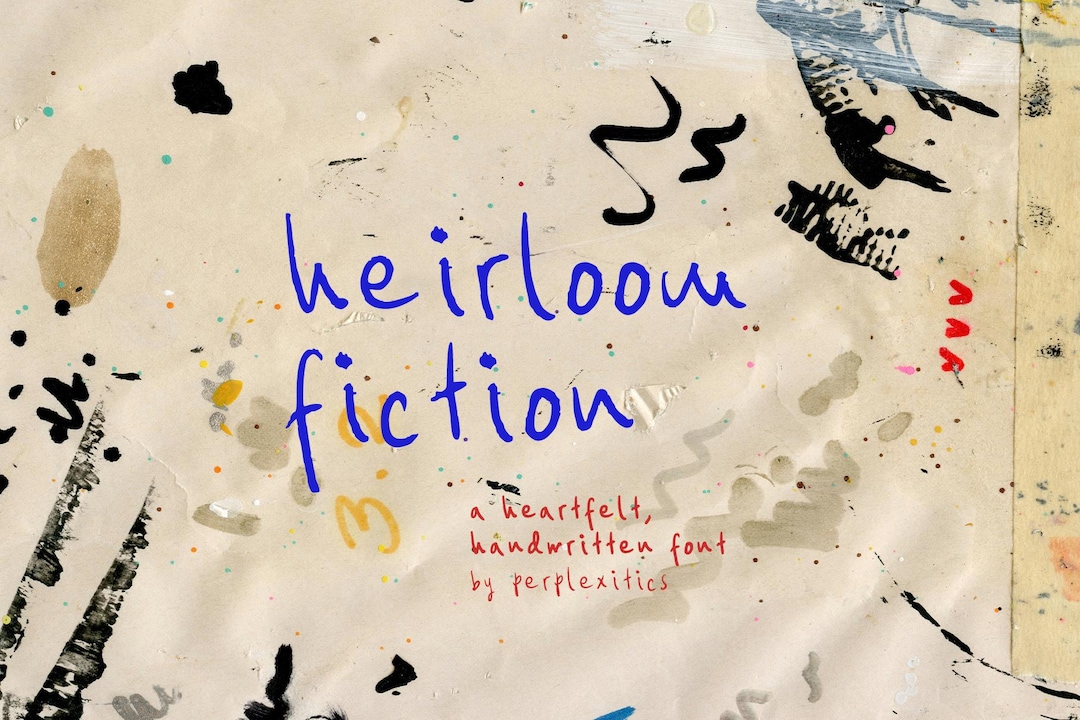 heirloom
fiction
a heartfelt,
handwritten font
by perplexitics